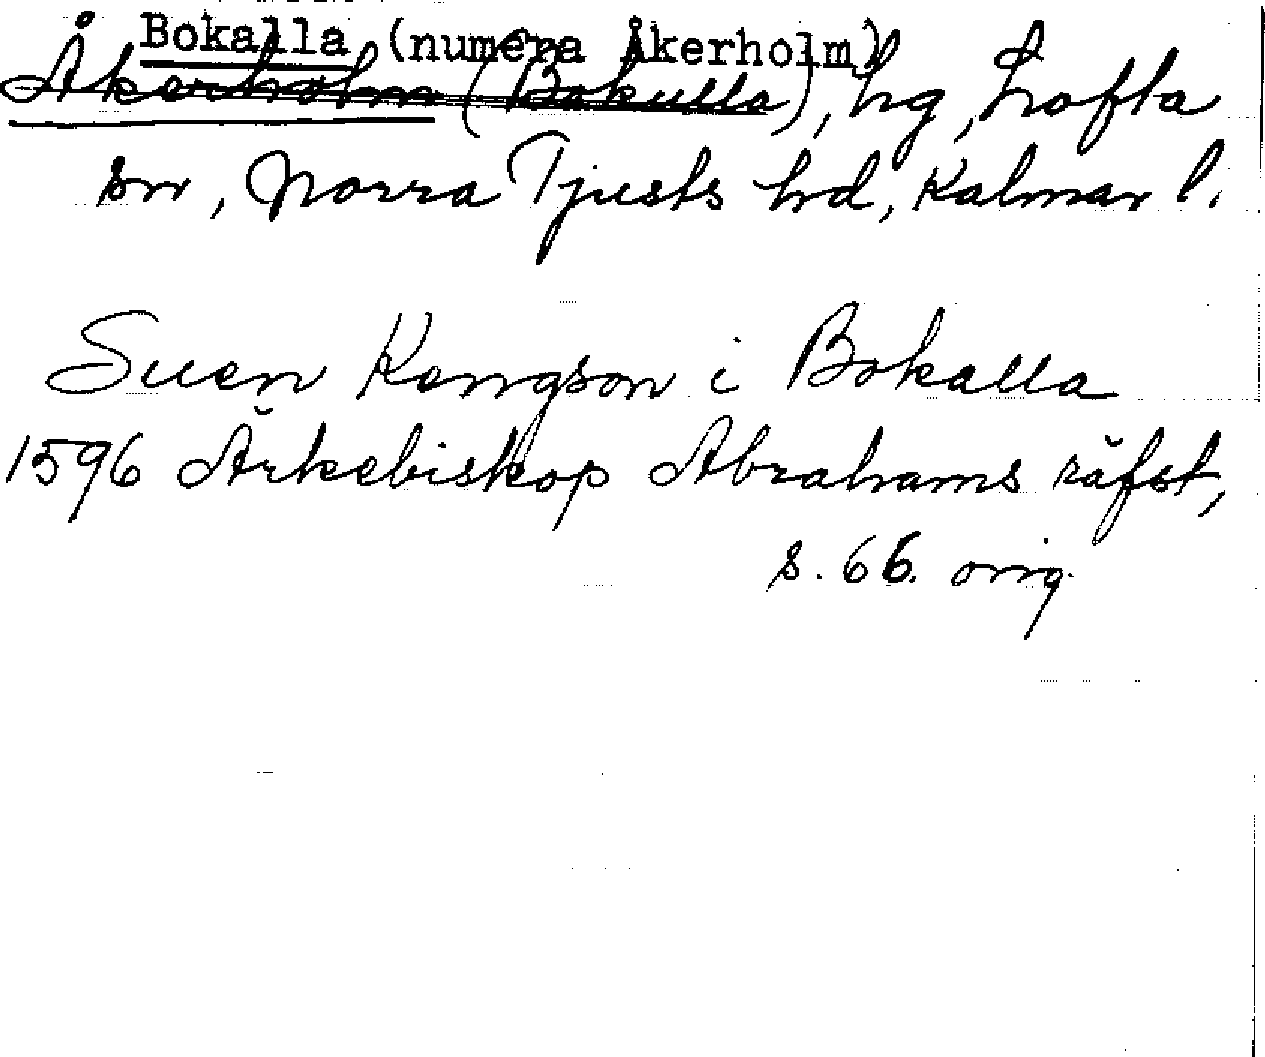 Bokalla (numera Åkerholm)
Åkerholm (Bokulla), hg, Lofta
sn, Norra Tjusts hd, Kalmar l.
Suen Kengson i Bokalla
1596 Ärkebiskop Abrahams räfst,
s. 66. orig.